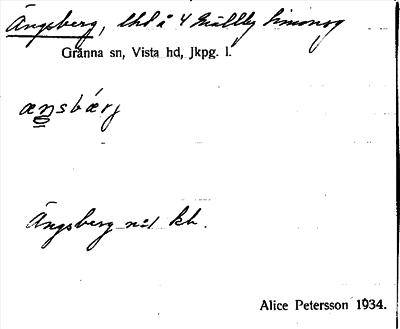 Ängsberg, lhl å 4 Målby Simonsg
Gränna sn, Vista hd, Jkpg. l.
ænsbærj
Ängsberg nåt kb.
Alice Petersson 1934.